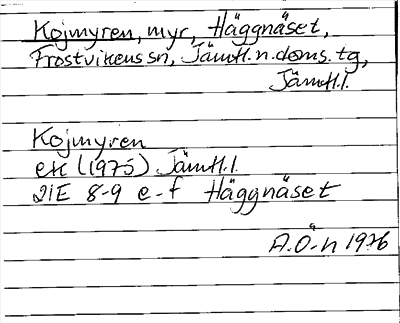 Kojmyren, myr, Häggnäset,
Frostvikens sn, Jämtl. n. doms. tg,
Jämtl. l.
Kojmyren
ek (1975) Jämtl. l.
21E 8-9 e-f Häggnäset
A.Ö-n 1976